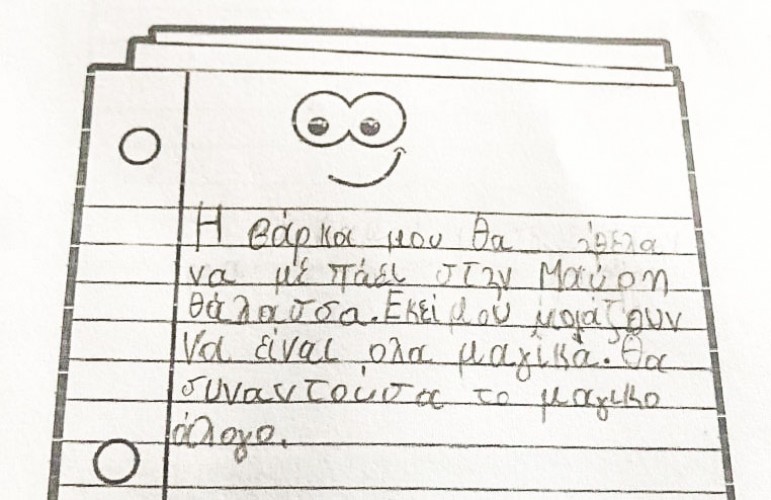 Η βάρκα μου θα ήθελα
να μέ πάει στην Μαύρη
θάλασσα. Εκεί μου μοιάζουν
να είναι ολα μαγικά. Θα
συναντούσα το μαγικο
άλογο.